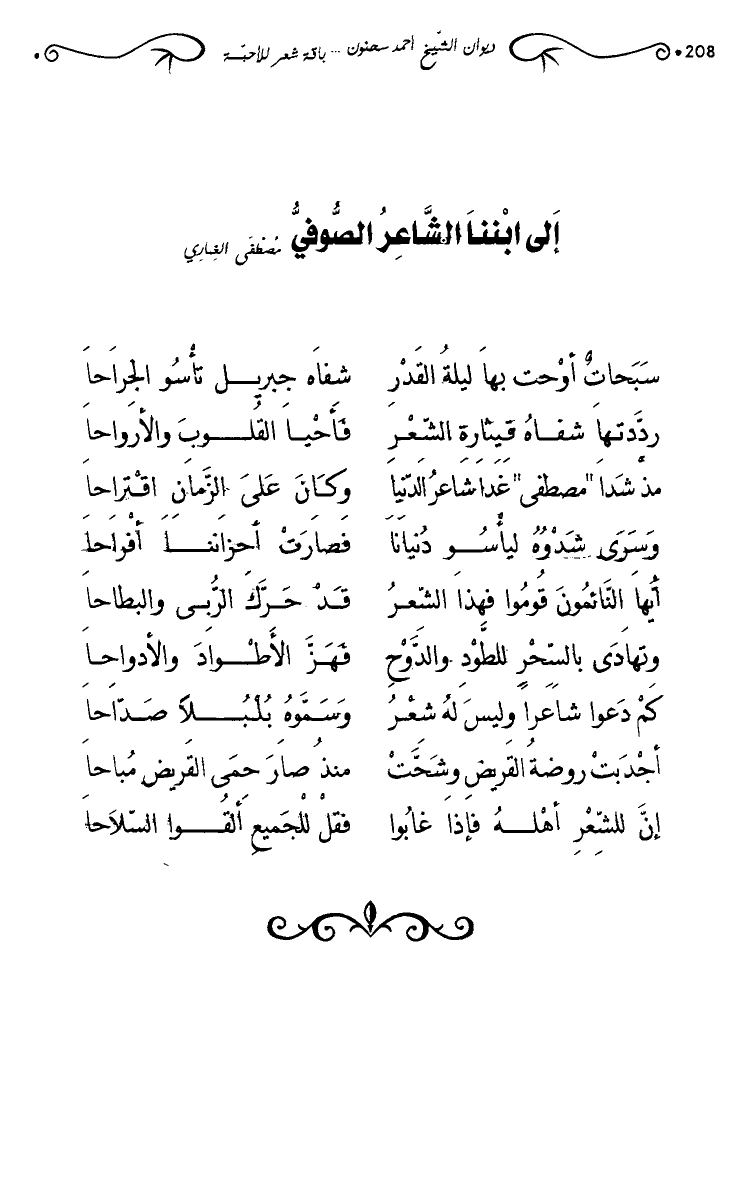 208 ديوان الشّيخ أحمد سحنون ... باقة شعر للأحبّة
إَلى ابْننَا الشَّاعِرُ الصُّوفيُّ مُصْطَفَى الغِماري
سَبَحاتٌ أوْحت بهاَ ليلةُ القَدْرِ شفاَه جبريل تأْسُو الجِراَحاَ
ردَّدتها شفاهُ قيثارةِ الشّعْرِ فَأَحْيا القُلوبَ والأرواحاَ
مذْ شَدَا "مصطفى" غداَ شاعرُ الدّنيا وكَانَ عَلىَ الزَّمانِ اقْتراحاَ
وَسَرَى شَدْوُهُ ليأْسُو دُنياناَ فصارَتْ أحزاننا أفْراحاَ
أيها النّائمُونَ قومُوا فهذا الشّعرُ قَدْ حَرَّكَ الرُّبى والبطاحاَ
وتهادَى بالسّحْرِ للطَّوْدِ والدَّوْحِ فَهَزَّ الأَطْوادَ والأدواحاَ
كمْ دَعوا شاعراً وليسَ لهُ شعْرُ وَسَمَّوهُ بُلْبُلاَ صَدّاحاَ
أجْدَبَتْ روضةُ القريضِ وشَحَّتْ منذُ صارَ حِمَى القريضِ مُباحاَ
إنَّ للشِّعْرِ أهْلهُ فإذَا غاَبُوا فقلْ لْلجَميعِ ألقُوا السّلاَحاَ